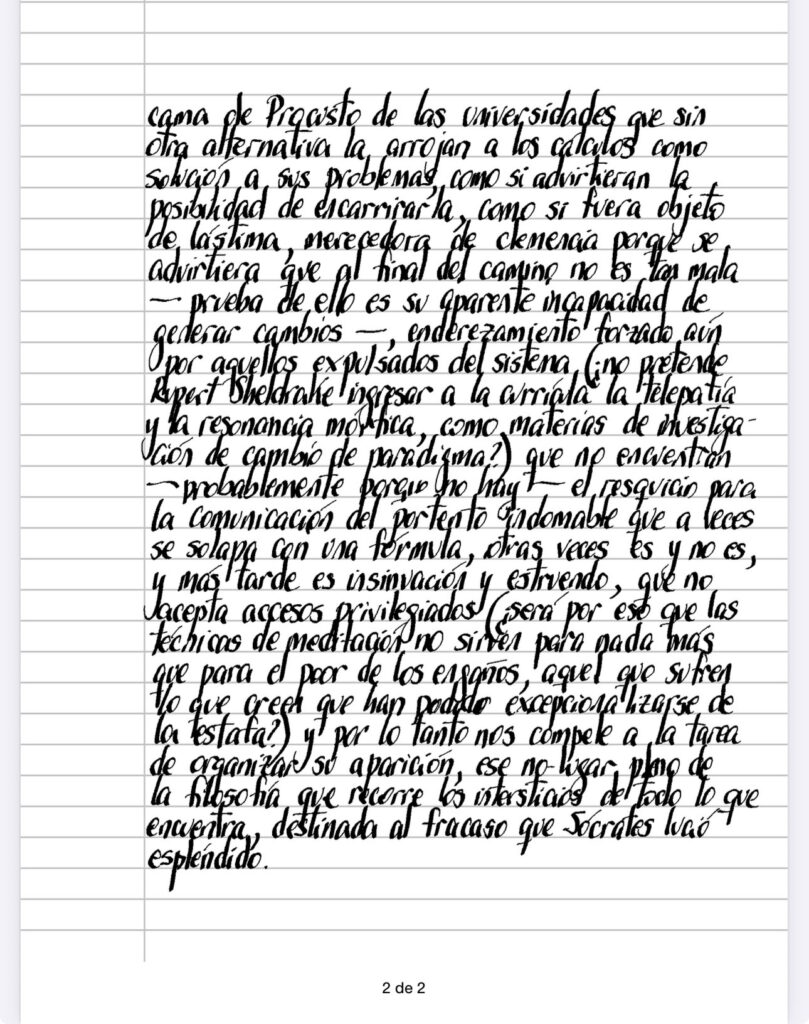 cama de Procusto de las universidades que sin
otra alternativa la arrojan a los cálculos como
solución a sus problemas, como si advirtieran la
posibilidad de encarrirarla, como si fuera objeto
de lástima, merecedora de clemencia porque se
advirtiera que al final del camino no es tan mala
— prueba de ello es su aparente incapacidad de
generar cambios —, enderezamiento forzado aún
por aquellos expulsados del sistema (¿no pretende
Rupert Sheldrake ingresar a la currícula la telepatía
y la resonancia mórfica, como materias de investiga-
ción de cambio de paradigma?) que no encuentran
— probablemente porque no hay — el resquicio para
la comunicación del portento indomable que a veces
se solapa con una fórmula, otras veces es y no es,
y más tarde es insinuación y estruendo, que no
acepta accesos privilegiados (¿será por eso que las
técnicas de meditación no sirven para nada más
que para el peor de los engaños, aquel que sufren
lo que creen que han podido excepcionalizarse de
la estafa?) y por lo tanto nos compele a la tarea
de organizar su aparición, ese no-lugar pleno de
la filosofía que recorre los intersticios de todo lo que
encuentra, destinada al fracaso que Sócrates lució
espléndido.
2 de 2